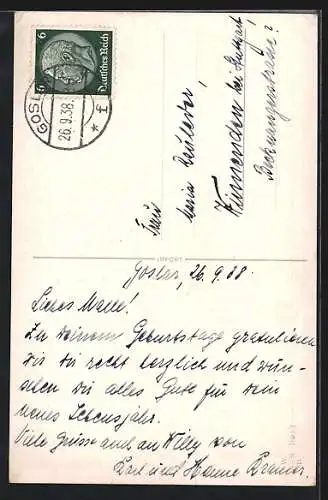 Goslar, 26.9.38.
Liebes Malle!
Zu Deinem Geburtstag gratulieren
wir Dir recht herzlich und wün-
schen Dir alles Gute für Dein
neues Lebensjahr.
Viele Grüsse auch an Willy von
Karl und Hanne
Frau
Maria
Winnenden bei Stuttgart
Backnangerstraße 2
6
6
Deutsches Reich
GOSL
26.9.38.
* f